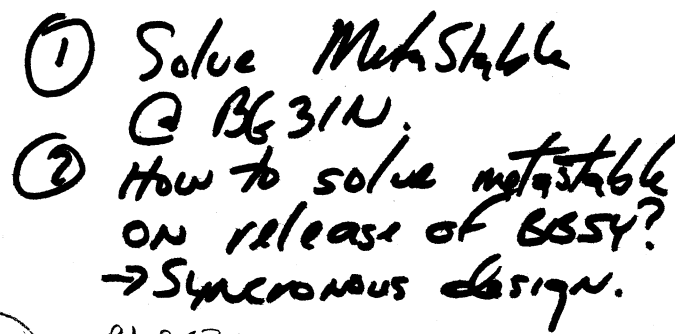 ① Solve MetaStable
@ BG3IN.
② How to solve metastable
on release of BBSY?
→ Syncronous design.